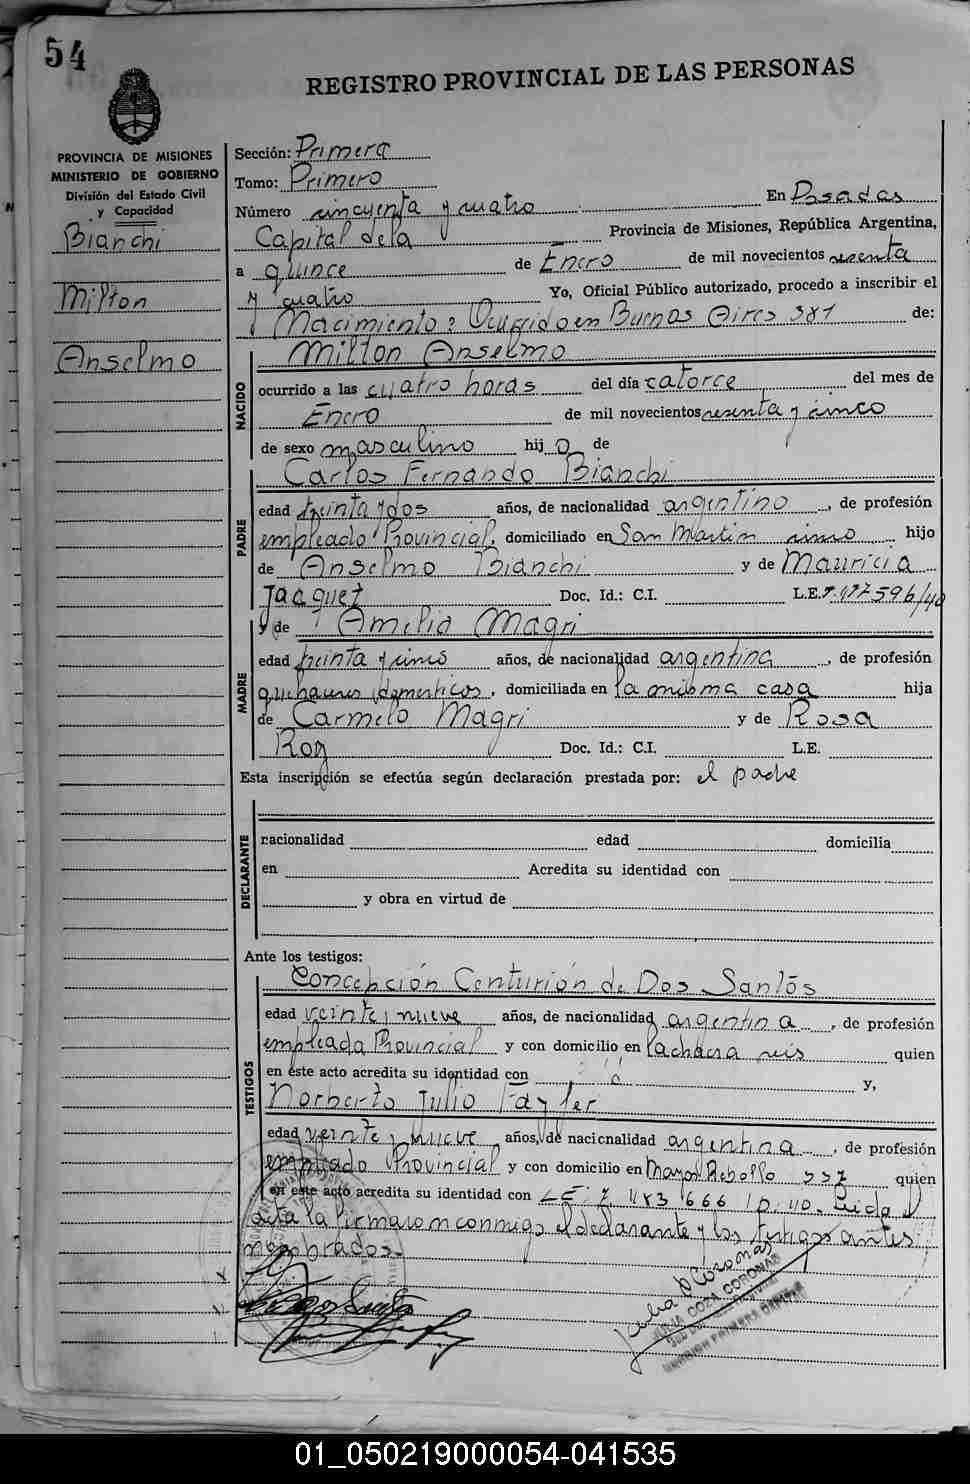 54
REGISTRO PROVINCIAL DE LAS PERSONAS
PROVINCIA DE MISIONES
MINISTERIO DE GOBIERNO
División del Estado Civil
y Capacidad
Bianchi
Milton
Anselmo
Sección: Primera
Tomo: Primero
Número cincuenta y cuatro En Posadas
Capital de la Provincia de Misiones, República Argentina,
a quince de Enero de mil novecientos sesenta
y cuatro Yo, Oficial Público autorizado, procedo a inscribir el
Nacimiento: Ocurrido en Buenos Aires 381 de:
Milton Anselmo
NACIDO
ocurrido a las cuatro horas del día catorce del mes de
Enero de mil novecientos sesenta y cinco
de sexo masculino hijo de
Carlos Fernando Bianchi
PADRE
edad treinta y dos años, de nacionalidad argentino, de profesión
empleado Provincial, domiciliado en San Martin hijo
de Anselmo Bianchi y de Mauricia
Jacquet Doc. Id.: C.I. L.E.
y de Amelia Magri
MADRE
edad treinta y cinco años, de nacionalidad argentina, de profesión
quehaceres domesticos, domiciliada en la misma casa hija
de Carmelo Magri y de Rosa
Doc. Id.: C.I. L.E.
Esta inscripción se efectúa según declaración prestada por: el padre
DECLARANTE
nacionalidad edad domicilia
en Acredita su identidad con
y obra en virtud de
Ante los testigos:
TESTIGOS
Concepción Centurión de Dos Santos
edad veinte y nueve años, de nacionalidad argentina, de profesión
empleada Provincial y con domicilio en la chacra seis quien
en éste acto acredita su identidad con y,
Norberto Julio
edad veinte y nueve años, de nacionalidad argentina, de profesión
empleado Provincial y con domicilio en Mayor Rebollo quien
en este acto acredita su identidad con L.E. Leida el
acta la firmaron conmigo el declarante y los testigos antes
nombrados.
Julia D Coronas
JULIA COZA CORONAS
01_050219000054-041535